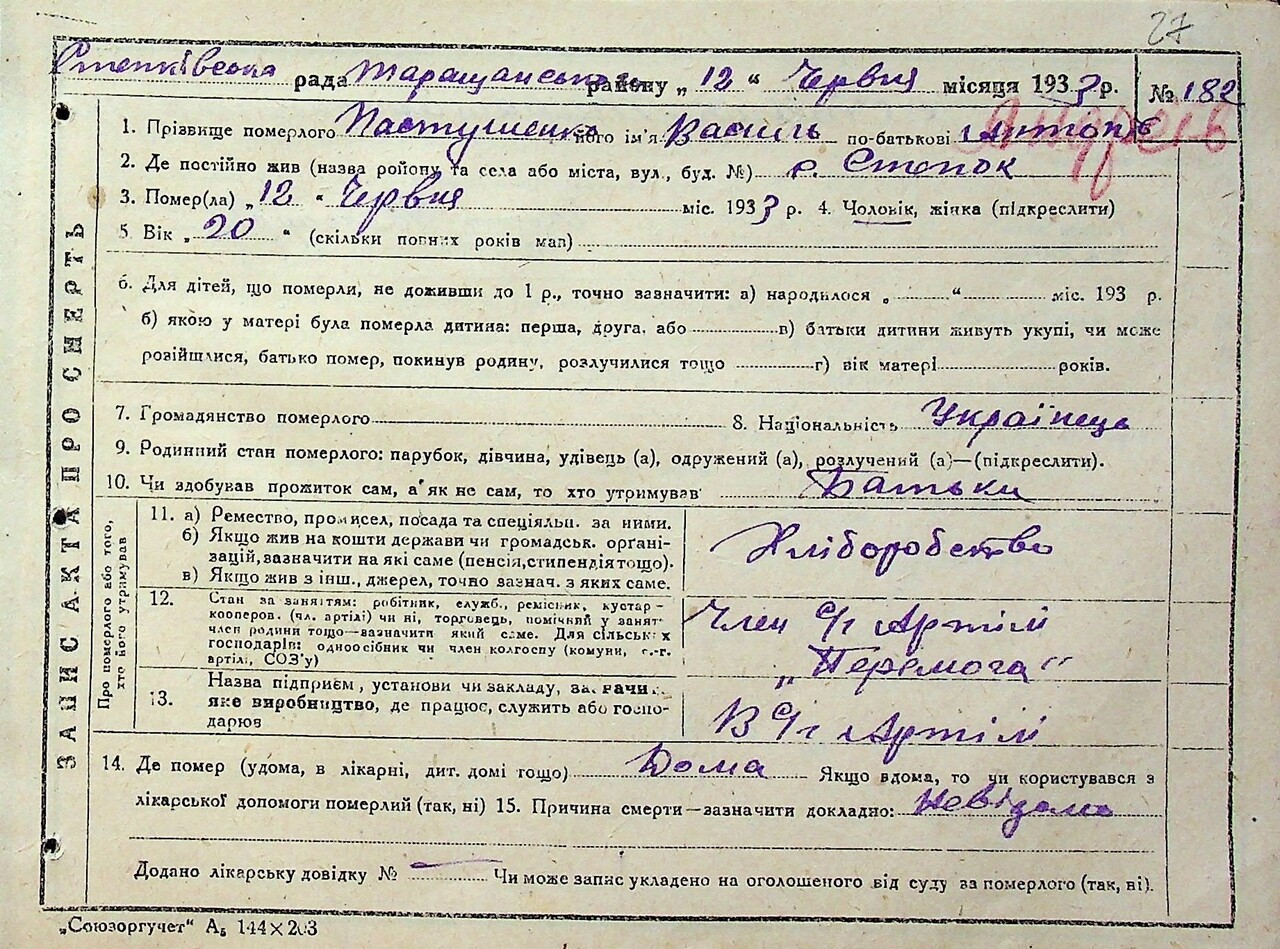 27
Степківська рада Таращанського району „12“ Червня місяця 1933 р. № 182
1. Прізвище померлого Пастушенко його ім'я Василь по-батькові Антонів
Андреїв
2. Де постійно жив (назва ройону, та села або міста, вул., буд. №) с. Степок
3. Помер(ла) „12“ Червня міс. 1933 р. 4. Чоловік, жінка (підкреслити)
5. Вік „20“ (скільки повних років мав)
6. Для дітей, що померли, не доживши до 1 р., точно зазначити: а) народилося „ “ міс. 193 р.
б) якою у матері була померла дитина: перша, друга, або в) батьки дитини живуть укупі, чи може
розійшлися, батько помер, покинув родину, розлучилися тощо г) вік матері років.
7. Громадянство померлого 8. Національність Українець
9. Родинний стан померлого: парубок, дівчина, удівець (а), одружений (а), розлучений (а)—(підкреслити).
10. Чи здобував прожиток сам, а як не сам, то хто утримував Батьки
ЗАПИС АКТА ПРО СМЕРТЬ
Про померлого або того,
хто кого утримував
11. а) Ремество, промисел, посада та спеціяльн. за ними.
б) Якщо жив на кошти держави чи громадськ. орґані-
зацій, зазначити на які саме (пенсія, стипендія тощо).
в) Якщо жив з інш., джерел, точно зазнач. з яких саме.
Хліборобство
12. Стан за заняттям: робітник, служб., ремісник, кустар-
кооперов. (чл. артілі) чи ні, торговець, помічний у занят
член родини тощо—зазначити який саме. Для сільських
господарів: одноосібник чи член колгоспу (комуни, с.-г.
артілі, СОЗ'у)
Член с/г Артілі
„Перемога“
13. Назва підприєм, установи чи закладу, зазначи
яке виробництво, де працює, служить або госпо-
дарює
В с/г Артілі
14. Де помер (удома, в лікарні, дит. домі тощо) Дома Якщо вдома, то чи користувався з
лікарської допомоги померлий (так, ні) 15. Причина смерти—зазначити докладно: Невідома
Додано лікарську довідку № — Чи може запис укладено на оголошеного від суду за померлого (так, ні).
„Союзоргучет“ А5 144×203